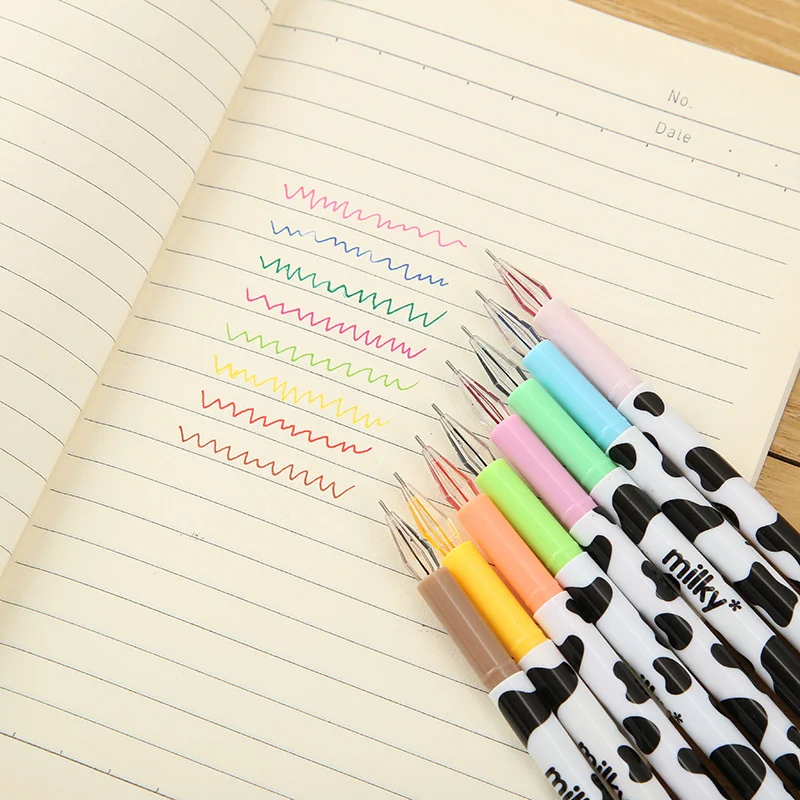 No.
Date
milky*
milky*
milky
milky